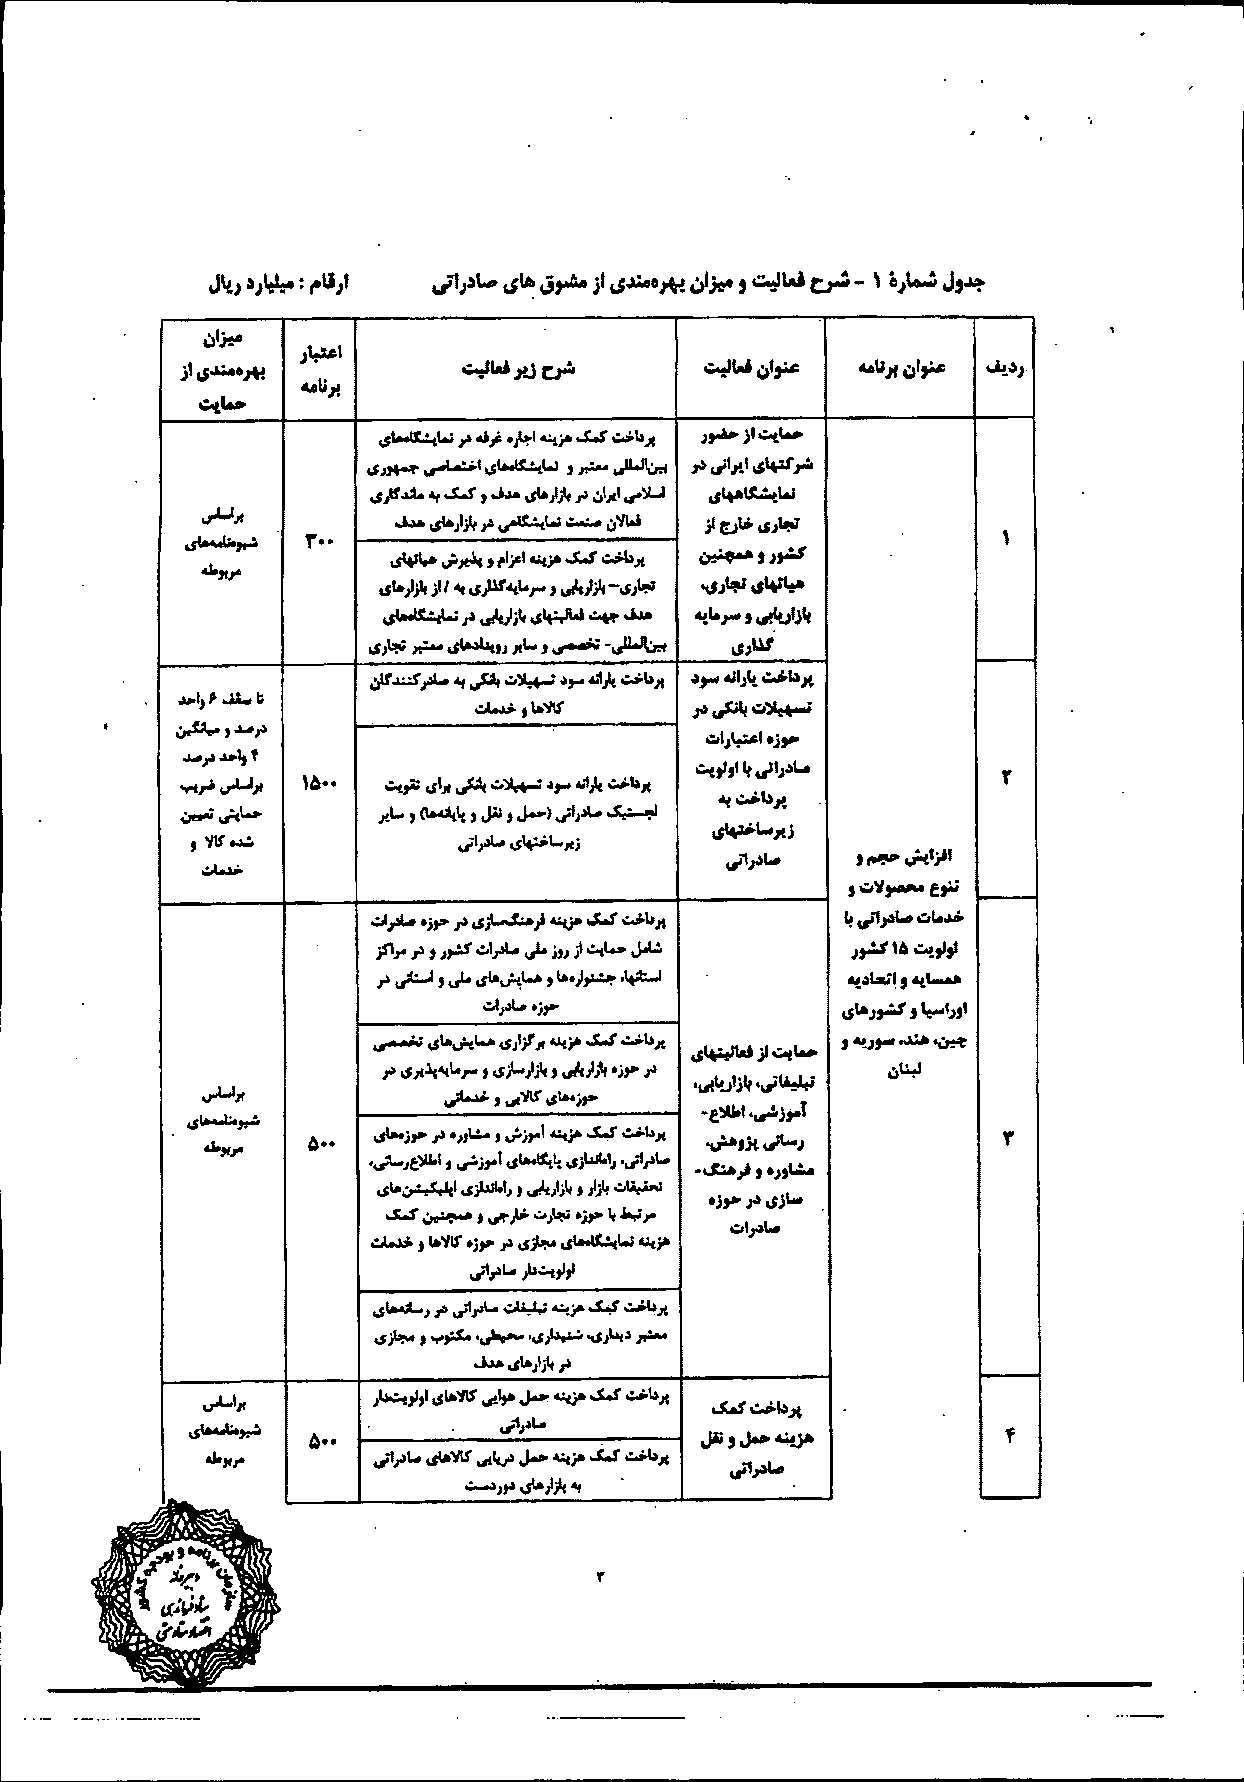 جدول شمارهٔ ۱ - شرح فعالیت و میزان بهره‌مندی از مشوق های صادراتی ارقام : میلیارد ریال
ردیف
عنوان برنامه
عنوان فعالیت
شرح زیر فعالیت
اعتبار
برنامه
میزان
بهره‌مندی از
حمایت
۱
افزایش حجم و
تنوع محصولات و
خدمات صادراتی با
اولویت ۱۵ کشور
همسایه و اتحادیه
اوراسیا و کشورهای
چین، هند، سوریه و
لبنان
حمایت از حضور
شرکتهای ایرانی در
نمایشگاههای
تجاری خارج از
کشور و همچنین
هیاتهای تجاری،
بازاریابی و سرمایه
گذاری
پرداخت کمک هزینه اجاره غرفه در نمایشگاه‌های
بین‌المللی معتبر و نمایشگاه‌های اختصاصی جمهوری
اسلامی ایران در بازارهای هدف و کمک به ماندگاری
فعالان صنعت نمایشگاهی در بازارهای هدف
پرداخت کمک هزینه اعزام و پذیرش هیاتهای
تجاری- بازاریابی و سرمایه‌گذاری به / از بازارهای
هدف جهت فعالیتهای بازاریابی در نمایشگاه‌های
بین‌المللی- تخصصی و سایر رویدادهای معتبر تجاری
۳۰۰
براساس
شیوه‌نامه‌های
مربوطه
۲
پرداخت یارانه سود
تسهیلات بانکی در
حوزه اعتبارات
صادراتی با اولویت
پرداخت به
زیرساختهای
صادراتی
پرداخت یارانه سود تسهیلات بانکی به صادرکنندگان
کالاها و خدمات
پرداخت یارانه سود تسهیلات بانکی برای تقویت
لجستیک صادراتی (حمل و نقل و پایانه‌ها) و سایر
زیرساختهای صادراتی
۱۵۰۰
تا سقف ۶ واحد
درصد و میانگین
۴ واحد درصد
براساس ضریب
حمایتی تعیین
شده کالا و
خدمات
۳
حمایت از فعالیتهای
تبلیغاتی، بازاریابی،
آموزشی، اطلاع-
رسانی پژوهش،
مشاوره و فرهنگ-
سازی در حوزه
صادرات
پرداخت کمک هزینه فرهنگ‌سازی در حوزه صادرات
شامل حمایت از روز ملی صادرات کشور و در مراکز
استانها، جشنواره‌ها و همایش‌های ملی و استانی در
حوزه صادرات
پرداخت کمک هزینه برگزاری همایش‌های تخصصی
در حوزه بازاریابی و بازارسازی و سرمایه‌پذیری در
حوزه‌های کالایی و خدماتی
پرداخت کمک هزینه آموزش و مشاوره در حوزه‌های
صادراتی، راه‌اندازی پایگاه‌های آموزشی و اطلاع‌رسانی،
تحقیقات بازار و بازاریابی و راه‌اندازی اپلیکیشن‌های
مرتبط با حوزه تجارت خارجی و همچنین کمک
هزینه نمایشگاه‌های مجازی در حوزه کالاها و خدمات
اولویت‌دار صادراتی
پرداخت کمک هزینه تبلیغات صادراتی در رسانه‌های
معتبر دیداری، شنیداری، محیطی، مکتوب و مجازی
در بازارهای هدف
۵۰۰
براساس
شیوه‌نامه‌های
مربوطه
۴
پرداخت کمک
هزینه حمل و نقل
صادراتی
پرداخت کمک هزینه حمل هوایی کالاهای اولویت‌دار
صادراتی
پرداخت کمک هزینه حمل دریایی کالاهای صادراتی
به بازارهای دوردست
۵۰۰
براساس
شیوه‌نامه‌های
مربوطه
سازمان برنامه و بودجه کشور
دبیرخانه
ستاد فرماندهی
اقتصاد مقاومتی
۳